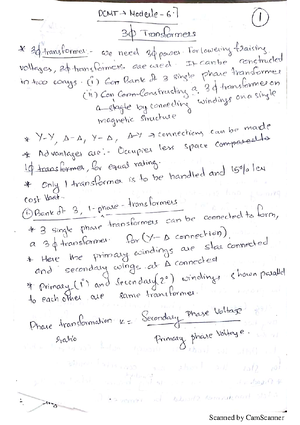 DCMT → Module - 6
1
3Φ Transformers
* 3Φ transformer - we need 3Φ power for lowering & raising
voltages, 3Φ transformers are used. It can be constructed
in two ways. (i) Con Bank of 3 single phase transformer
(ii) Con Constructing a 3Φ transformer on
a single by connecting windings on a single
magnetic structure.
* Y-Y, Δ-Δ, Y-Δ, Δ-Y → connection can be made
* Advantages are:- Occupies less space compared to
1Φ transformer, for equal rating.
* Only 1 transformer is to be handled and 15% less
cost
Bank of 3, 1-phase-transformers
* 3 single phase transformers can be connected to form,
a 3Φ transformer for (Y-Δ connection)
* Here the primary windings are star connected
and secondary wings as Δ connected
* Primary (1°) and Secondary (2°) windings shown parallel
to each other are same transformer.
Phase transformation K = Secondary Phase Voltage
ratio Primary phase Voltage.
Scanned by CamScanner